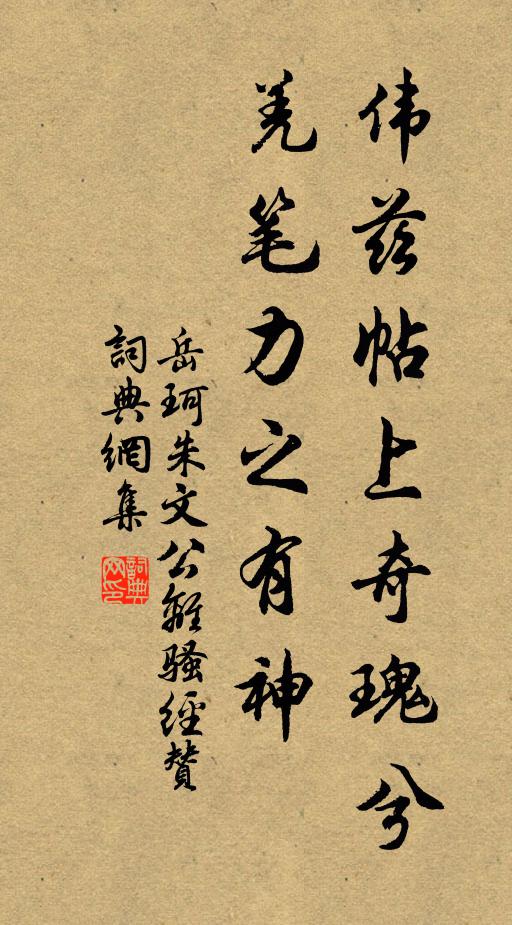 伟兹帖上奇瑰兮
羌笔力之有神
岳珂朱文公離骚經贊
詞典網集
詞典網印